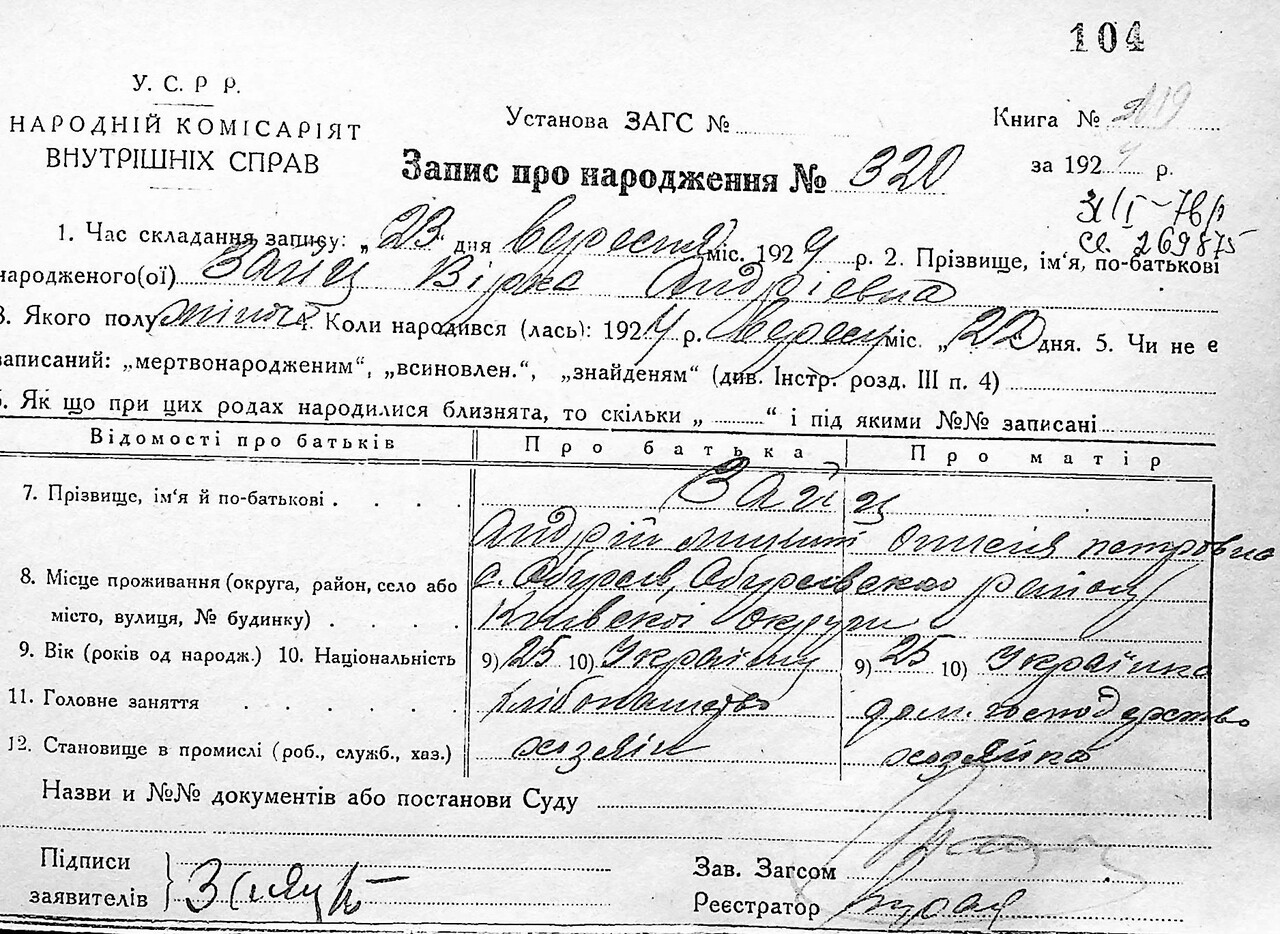 104
У. С. Р Р.
НАРОДНІЙ КОМІСАРІЯТ
ВНУТРІШНІХ СПРАВ
Установа ЗАГС №
Книга №
за 1924 р.
Запис про народження № 320
31/I-76р
св. 269875
1. Час складання запису: „23“ дня вересня міс. 1924 р. 2. Прізвище, ім'я, по-батькові
народженого(ої) Заяц Віра Андріевна
3. Якого полу жіноч. 4. Коли народився (лась): 1924 р. вересня міс. „22“ дня. 5. Чи не є
записаний: „мертвонародженим“, „всиновлен.“, „знайденям“ (див. Інстр. розд. III п. 4)
6. Як що при цих родах народилися близнята, то скільки „ “ і під якими №№ записані
Відомості про батьків Про батька Про матір
7. Прізвище, ім'я й по-батькові Заяц
Андрій петровна
8. Місце проживання (округа, район, село або
місто, вулиця, № будинку) району
Київскої округи
9. Вік (років од народж.) 10. Національність 9) 25 10) Українец 9) 25 10) Українка
11. Головне заняття хлібопашество дом. господарство
12. Становище в промислі (роб., служб., хаз.) хозяін хозяйка
Назви и №№ документів або постанови Суду
Підписи
заявителів
Зав. Загсом
Реєстратор